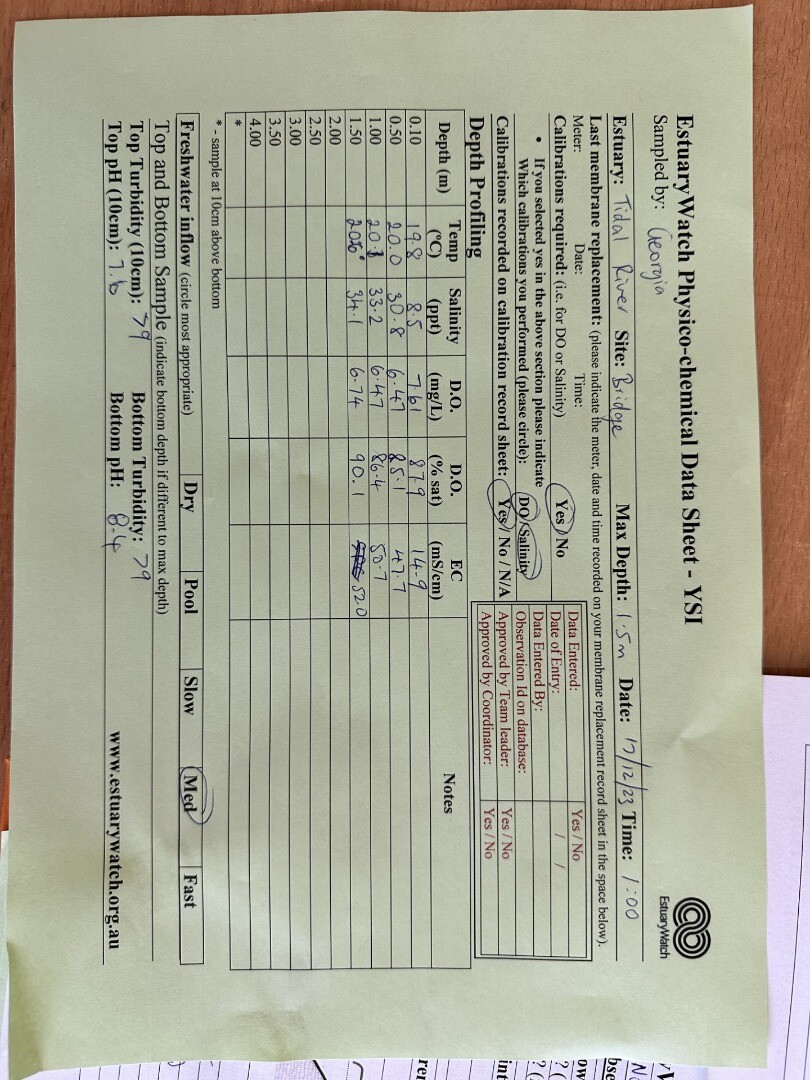 EstuaryWatch Physico-chemical Data Sheet - YSI
EstuaryWatch
Sampled by: Georgia
Estuary: Tidal River Site: Bridge Max Depth: 1.5m Date: 17/12/23 Time: 1:00
Last membrane replacement: (please indicate the meter, date and time recorded on your membrane replacement record sheet in the space below).
Meter: Date: Time:
Calibrations required: (i.e. for DO or Salinity) Yes / No
• If you selected yes in the above section please indicate
Which calibrations you performed (please circle): DO / Salinity
Calibrations recorded on calibration record sheet: Yes / No / N/A
Data Entered: Yes / No
Date of Entry: / /
Data Entered By:
Observation Id on database:
Approved by Team leader: Yes / No
Approved by Coordinator: Yes / No
Depth Profiling
Depth (m) Temp (ºC) Salinity (ppt) D.O. (mg/L) D.O. (% sat) EC (mS/cm) Notes
0.10 19.8 8.5 7.61 87.9 14.9
0.50 20.0 30.8 6.47 85.1 47.7
1.00 20.1 33.2 6.47 86.4 50.7
1.50 34.1 6.74 90.1 52.0
2.00
2.50
3.00
3.50
4.00
*
* - sample at 10cm above bottom
Freshwater inflow (circle most appropriate) Dry Pool Slow Med Fast
Top and Bottom Sample (indicate bottom depth if different to max depth)
Top Turbidity (10cm): 79 Bottom Turbidity: 79
Top pH (10cm): 7.6 Bottom pH: 8.4 www.estuarywatch.org.au